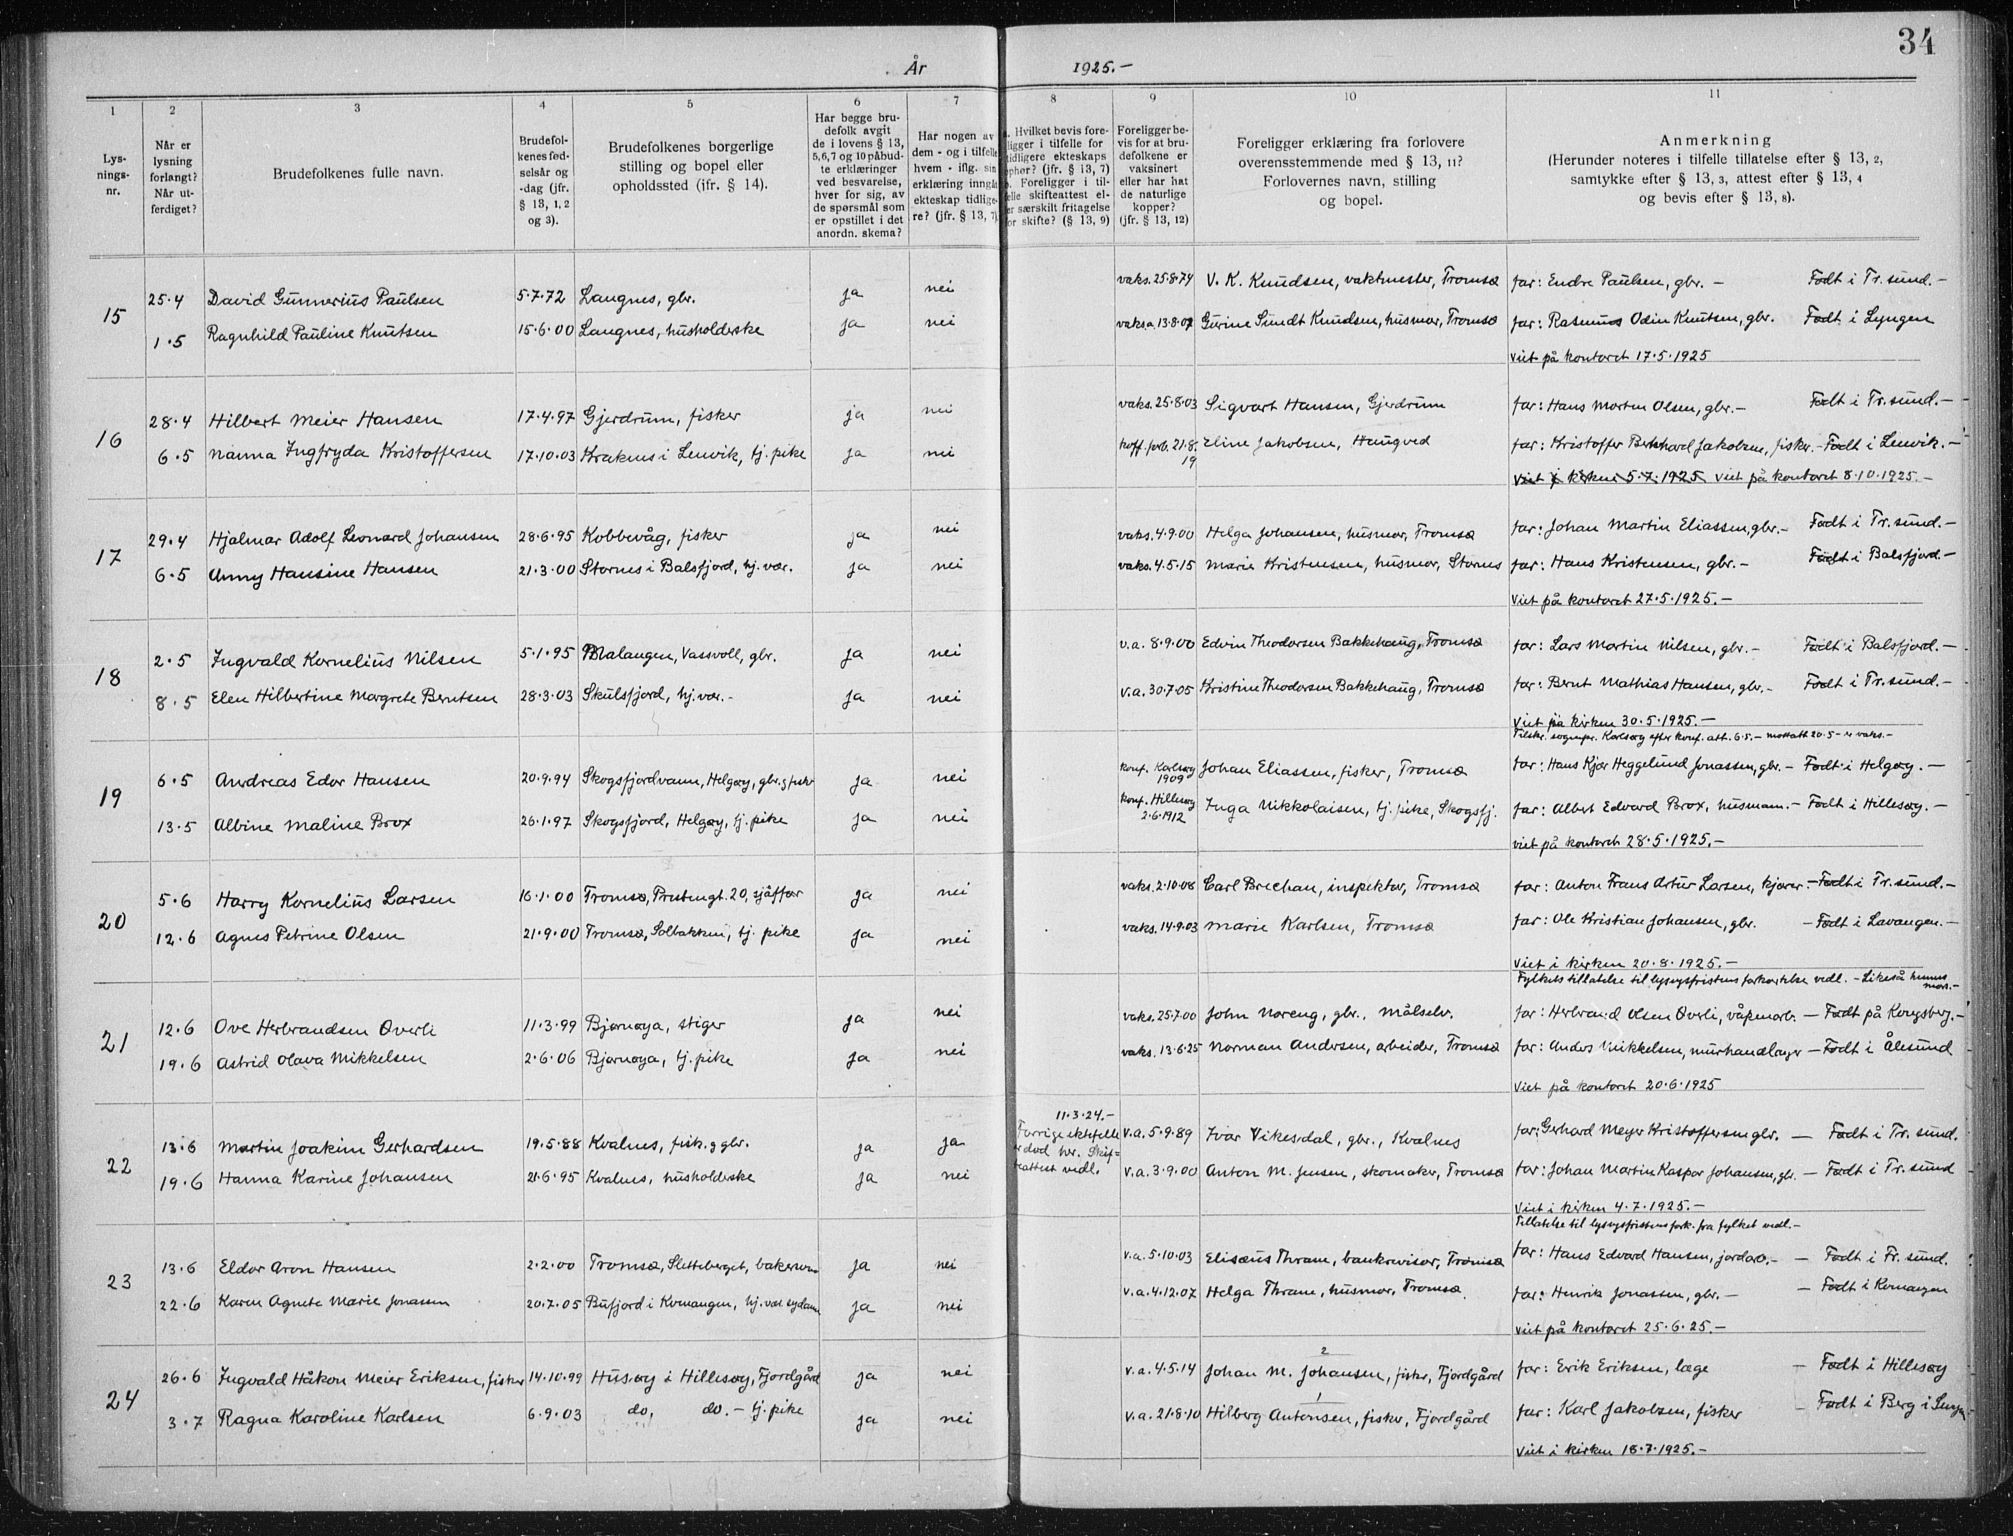 34
År 1925.-
1 2 3 4 5 6 7 8 9 10 11
Lys-
nings-
nr.
Når er
lysning
forlangt?
Når ut-
ferdiget?
Brudefolkenes fulle navn.
Brudefol-
kenes fød-
selsår og
-dag (jfr.
§ 13, 1, 2
og 3).
Brudefolkenes borgerlige
stilling og bopel eller
opholdssted (jfr. § 14).
Har begge bru-
defolk avgit
de i lovens § 13,
5, 6, 7 og 10 påbud-
te erklæringer
ved besvarelse,
hver for sig, av
de spørsmål som
er opstillet i det
anordn. skema?
Har nogen av
dem - og i tilfelle
hvem - iflg. sin
erklæring inngått
ekteskap tidlige-
re? (jfr. § 13, 7).
a. Hvilket bevis fore-
ligger i tilfelle for
tidligere ekteskaps
ophør? (jfr. § 13, 7)
b. Foreligger i til-
felle skifteattest el-
ler særskilt fritagelse
for skifte? (§ 13, 9)
Foreligger be-
vis for at bru-
defolkene er
vaksinert
eller har hat
de naturlige
kopper?
(jfr. § 13, 12)
Foreligger erklæring fra forlovere
overensstemmende med § 13, 11?
Forlovernes navn, stilling
og bopel.
Anmerkning
(Herunder noteres i tilfelle tillatelse efter § 13, 2,
samtykke efter § 13, 3, attest efter § 13, 4
og bevis efter § 13, 8).
15 25.4 David Gunnerius Paulsen 5.7.72 Langnes, gbr. ja nei vaks. 25.8.74 V. K. Knudsen, vaktmester, Tromsø far: Endre Paulsen, gbr. - Født i Tr.sund.-
1.5 Ragnhild Pauline Knutsen 15.6.00 Langnes, husholderske ja nei vaksa. 13.8.07 Gurine Sundt Knudsen, husmor, Tromsø far: Rasmus Odin Knutsen, gbr. Født i Lyngen
Viet på kontoret 17.5.1925
16 28.4 Hilbert Meier Hansen 17.4.97 Gjerdrum, fisker ja nei vaks. 25.8.03 Sigvart Hansen, Gjerdrum far: Hans Morten Olsen, gbr.- Født i Tr.sund.-
6.5 Nanna Ingfryda Kristoffersen 17.10.03 Kraknes i Lenvik, tj. pike ja nei koff. forb. 21.8.19 Eline Jakobsen, Haugved far: Kristoffer Bernhard Jakobsen, fisker.- Født i Lenvik.-
Viet i kirken 5.7.1925 Viet på kontoret 8.10.1925.-
17 29.4 Hjalmar Adolf Leonard Johansen 28.6.95 Kobbevåg, fisker ja nei vaks. 4.9.00 Helga Johansen, husmor, Tromsø far: Johan Martin Eliassen, gbr.- Født i Tr.sund.-
6.5 Anny Hansine Hansen 21.3.00 Stornes i Balsfjord, hj.vær. ja nei vaks. 4.5.15 Marie Kristensen, husmor, Stornes far: Hans Kristensen, gbr.- Født i Balsfjord.-
Viet på kontoret 27.5.1925.-
18 2.5 Ingvald Kornelius Nilsen 5.1.95 Malangen, Vassvoll, gbr. ja nei v.a. 8.9.00 Edvin Theodorsen Bakkehaug, Tromsø far: Lars Martin Nilsen, gbr.- Født i Balsfjord.-
8.5 Elen Hilbertine Margrete Berntsen 28.3.03 Skulsfjord, hj.vær.- ja nei v.a. 30.7.05 Kristine Theodorsen Bakkehaug, Tromsø far: Bernt Mathias Hansen, gbr.- Født i Tr.sund.-
Viet på kirken 30.5.1925.-
Tilskr. sognepr. Karlsøy efter konf. att. 6.5.- mottatt 20.5- er vaks.-
19 6.5 Andreas Edor Hansen 20.9.94 Skogsfjordvann, Helgøy, gbr. g fisker ja nei konf. Karlsøy 1909 Johan Eliassen, fisker, Tromsø far: Hans Kjær Heggelund Jonassen, gbr.- Født i Helgøy.-
13.5 Albine Maline Brox 26.1.97 Skogsfjord, Helgøy, tj. pike ja nei konf. Hillesøy 2.6.1912 Inga Nikkolaisen, tj. pike, Skogsfj. far: Albert Edvard Brox, husmann.- Født i Hillesøy.-
Viet på kontoret 28.5.1925.-
20 5.6 Harry Kornelius Larsen 16.1.00 Tromsø, Prestengt. 20, sjåffør ja nei vaks. 2.10.08 Carl Brechan, inspektør, Tromsø far: Anton Frans Artur Larsen, kjører - Født i Tr.sund.-
12.6 Agnes Petrine Olsen 21.9.00 Tromsø, Solbakken, tj. pike ja nei vaks. 14.9.03 Marie Karlsen, Tromsø far: Ole Kristian Johansen, gbr. - Født i Lavangen.-
Viet i kirken 20.8.1925.-
Fylkets tillatelse til lysngsfristens forkortelse vedl. - Likeså hennes mors.-
21 12.6 Ove Herbrandsen Överli 11.3.99 Bjørnøya, stiger ja nei vaks. 25.7.00 John Noreng, gbr., Målselv. far: Herbrand Olsen Överli, våpenarb. - Født på Kongsberg.-
19.6 Astrid Olava Mikkelsen 2.6.06 Bjørnøya, tj. pike ja nei vaks. 13.6.25 Norman Andersen, arbeider, Tromsø far: Anders Mikkelsen, murhandlanger - Født i Ålesund
Viet på kontoret 20.6.1925
22 13.6 Martin Joakim Gerhardsen 19.5.88 Kvalnes, fisk. g gbr. ja ja 11.3.24.- Forrige ektefelle er død her. Skifteattest vedl. v.a. 5.9.89 Ivar Vikesdal, gbr., Kvalnes far: Gerhard Meyer Kristoffersen gbr. - Født i Tr. sund.
19.6 Hanna Karine Johansen 21.6.95 Kvalnes, husholderske ja nei v.a. 3.9.00 Anton M. Jensen, skomaker, Tromsø far: Johan Martin Kaspar Johansen, gbr. - Født i Tr. sund
Viet i kirken 4.7.1925.-
Tillatelse til lysngsfristens fork. fra fylket vedl.-
23 13.6 Eldor Aron Hansen 2.2.00 Tromsø, Sletteberget, bakersvenn ja nei v.a. 5.10.03 Elisæus Thrane, bankrevisor, Tromsø far: Hans Edvard Hansen, jordarb.- - Født i Tr. sund.
22.6 Karen Agnete Marie Jonassen 20.7.05 Bufjord i Kvenangen, hj.vær. sydame ja nei v.a. 4.12.07 Helga Thrane, husmor, Tromsø. far: Henrik Jonassen, gbr.- - Født i Kvenangen
Viet på kontoret 25.6.25.-
24 26.6 Ingvald Håkon Meier Eriksen, fisker 14.10.99 Husøy i Hillesøy, Fjordgård ja nei v.a. 4.5.14 Johan M. Johansen, fisker, Fjordgård 2 far: Erik Eriksen, læge - Født i Hillesøy
3.7 Ragna Karoline Karlsen 6.9.03 do, do.- tj. pike ja nei v.a. 21.8.10 Hilberg Antonsen, fisker, Fjordgård 1 far: Karl Jakobsen, fisker - Født i Berg i Senjen
Viet i kirken 18.7.1925.-